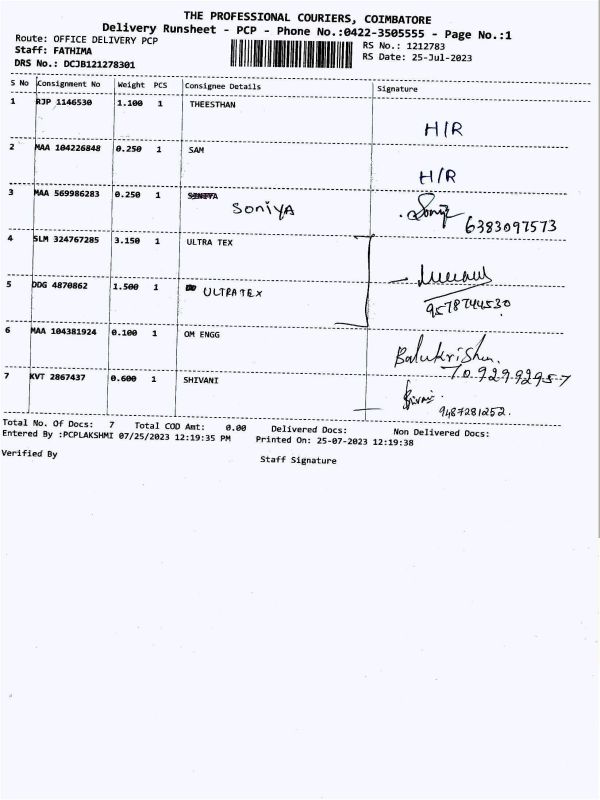 THE PROFESSIONAL COURIERS, COIMBATORE
Delivery Runsheet - PCP - Phone No.:0422-3505555 - Page No.:1
Route: OFFICE DELIVERY PCP RS No.: 1212783
Staff: FATHIMA RS Date: 25-Jul-2023
DRS No.: DCJB121278301
S No Consignment No Weight PCS Consignee Details Signature
1 RJP 1146530 1.100 1 THEESTHAN
H/R
2 MAA 104226848 0.250 1 SAM
H/R
3 MAA 569986283 0.250 1
SONIYA 6383097573
4 SLM 324767285 3.150 1 ULTRA TEX
5 DDG 4870862 1.500 1 ULTRATEX
9578744530
6 MAA 104381924 0.100 1 OM ENGG
Balukrishn.
7 KVT 2867437 0.600 1 SHIVANI
9487281252.
Total No. Of Docs: 7 Total COD Amt: 0.00 Delivered Docs: Non Delivered Docs:
Entered By :PCPLAKSHMI 07/25/2023 12:19:35 PM Printed On: 25-07-2023 12:19:38
Verified By Staff Signature